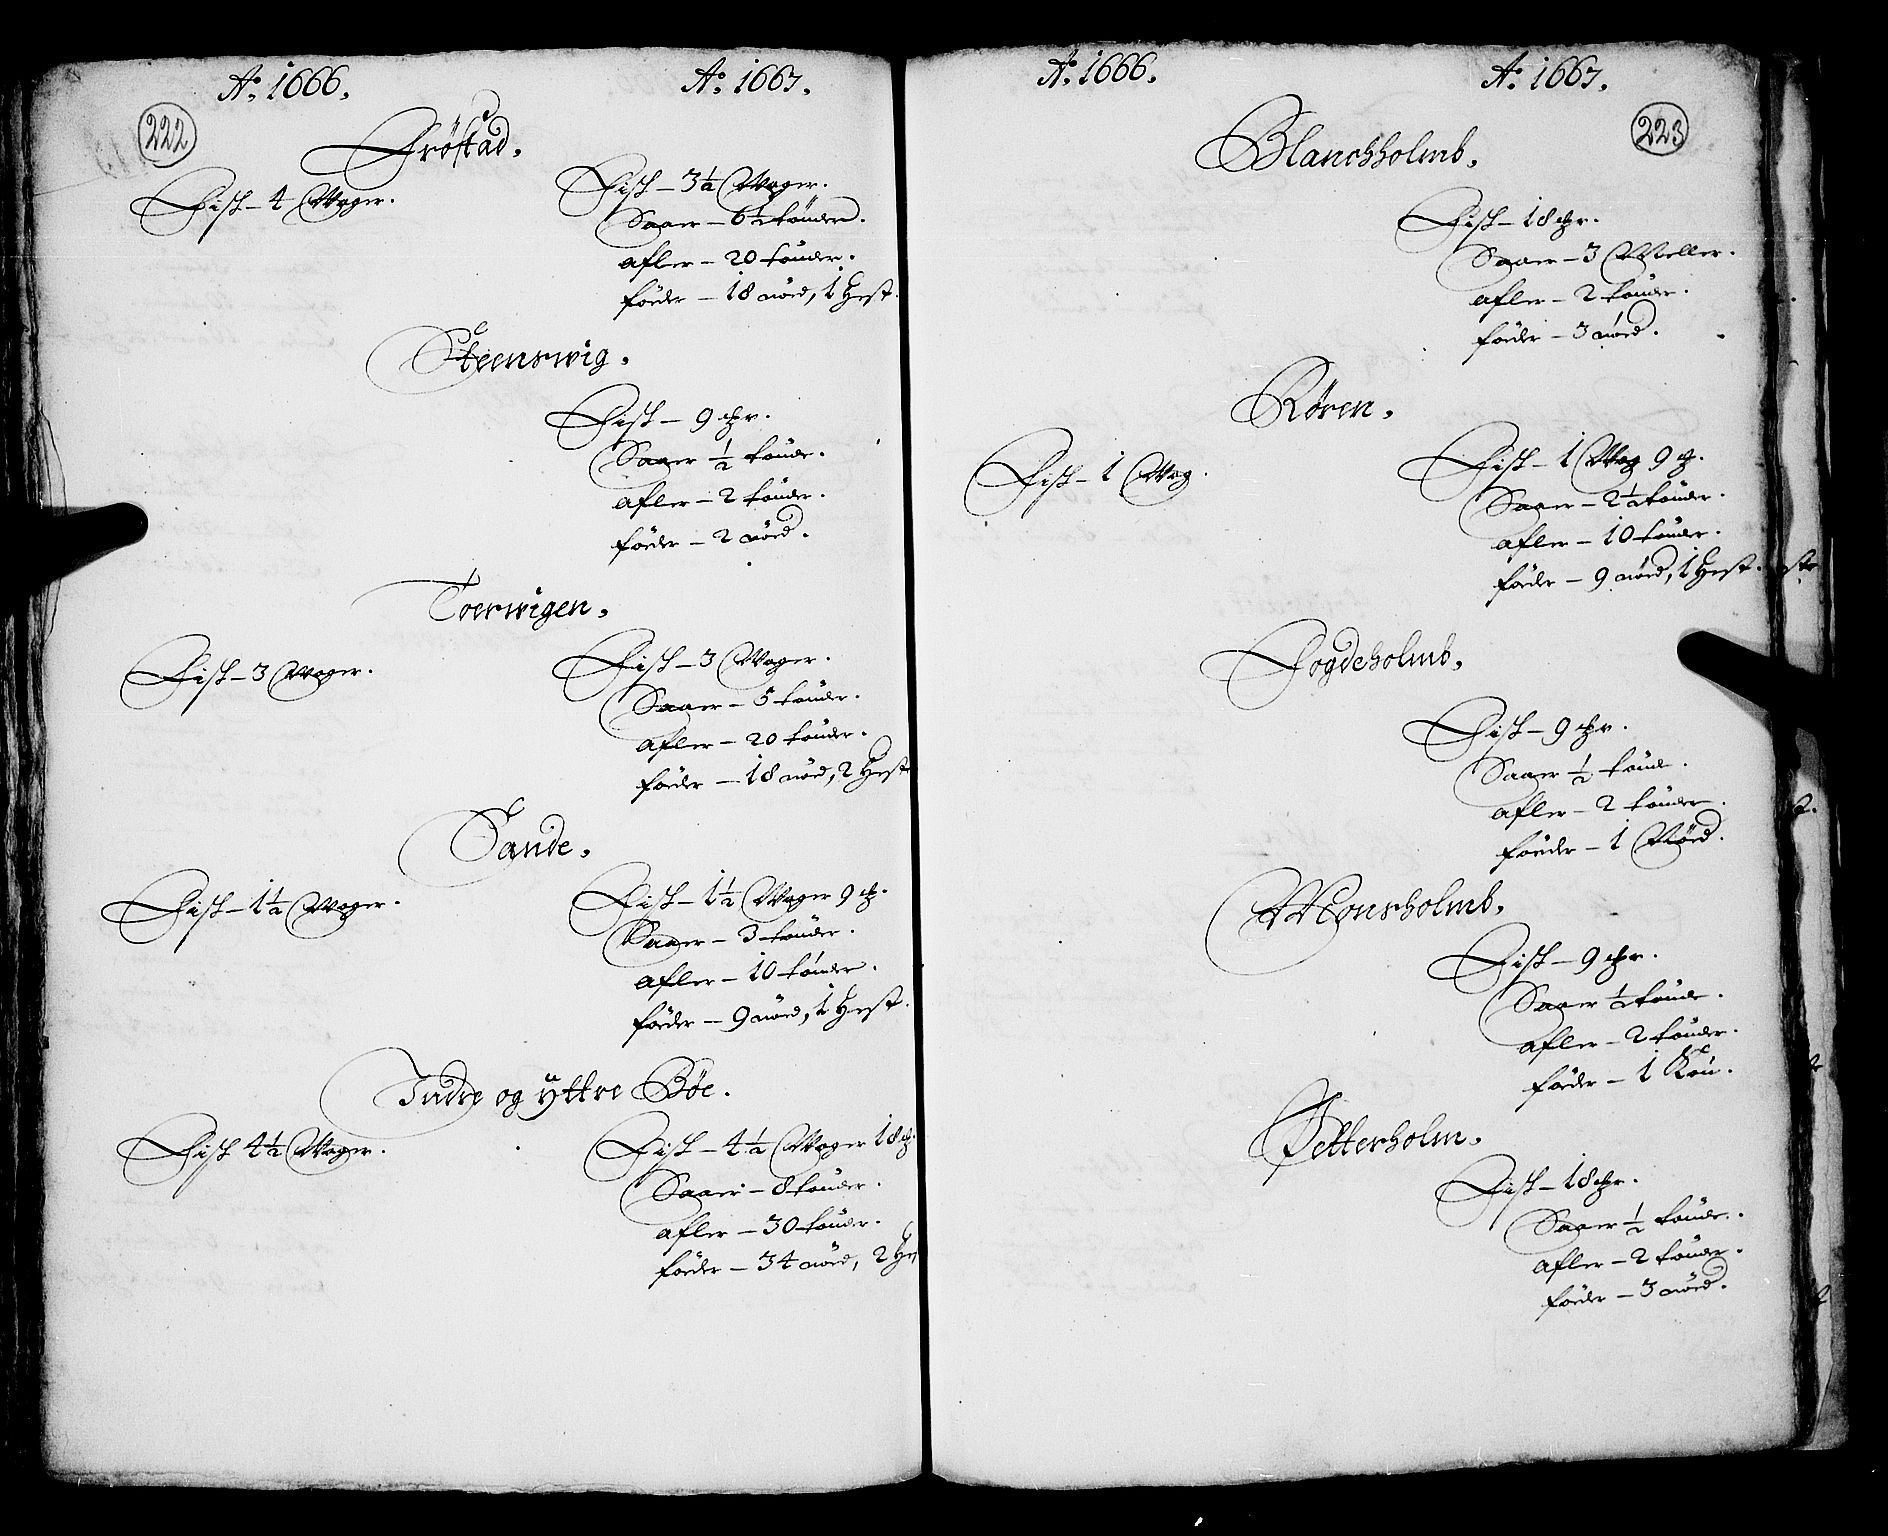 Ao. 1666. Ao. 1667.
222
Frøstad.
Fisk – 4 Woger. Fisk – 3½ Woger.
Saaer – 6½ tønder.
afler – 20 tønder.
føeder – 18 nøed, 1 Hest.
Steenswig.
Fisk – 9 ℔r.
Saaer ½ tønde.
afler – 2 tønder.
føeder – 2 nøed.
Toerwigen.
Fisk – 3 Woger. Fisk – 3 Woger.
Saaer – 5 tønder.
afler – 20 tønder.
føeder – 18 nøed, 2 Hest
Sande.
Fisk – 1½ Woger. Fisk – 1½ Woger 9 ℔.
Saaer – 3 tønder.
afler – 10 tønder.
føeder – 9 nøed, 1 Hest.
Indre og yttre Bøe.
Fisk 4½ Woger. Fisk – 4½ Woger 18 ℔.
Saaer – 8 tønder.
afler – 30 tønder.
føeder – 34 nøed, 2 Hes
Ao. 1666. Ao. 1667.
223
Blanchholmb.
Fisk – 18 ℔r.
Saaer – 3 Meller.
afler – 2 tønder.
føeder – 3 nøed.
Røren.
Fisk – 1 Wog. Fisk – 1 Wog 9 ℔.
Saaer – 2½ tønder.
afler – 10 tønder.
føeder – 9 nøed, 1 Hest.
Fogdeholmb.
Fisk – 9 ℔r.
Saaer ½ tønde.
afler – 2 tønder.
føeder – 1 Nøed.
Monsholmb.
Fisk – 9 ℔r.
Saaer ½ tønde.
afler – 2 tønder.
føeder – 1 Kou.
Petterholm.
Fisk – 18 ℔r.
Saaer ½ tønde.
afler – 2 tønder.
føeder – 3 nøed.